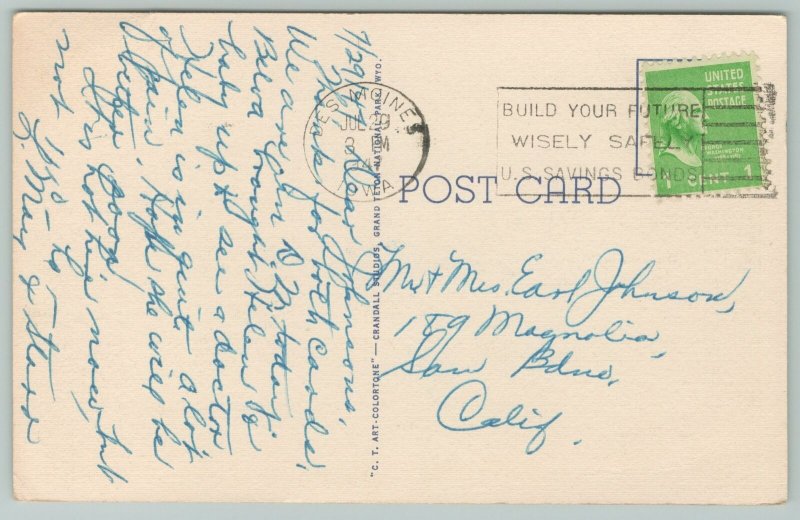 7/29/4
Dear Johnsons,
Thanks for both cards.
We are in D. M. today.
Belva brought Helen &
baby up to see a doctor
Helen is in quite a lot
of pain. Hope she will be
better soon.
It is hot here now, but
not
Yrs
L. May &
DES MOINES
JUL 29
8 PM
IOWA
BUILD YOUR FUTURE
WISELY SAFELY
U.S. SAVINGS BONDS
UNITED
STATES
POSTAGE
GEORGE
WASHINGTON
1 CENT 1
POST CARD
"C. T. ART-COLORTONE"—CRANDALL STUDIOS, GRAND TETON NATIONAL PARK, WYO.
Mr & Mrs. Earl Johnson,
189 Magnolia,
San Bdno,
Calif.